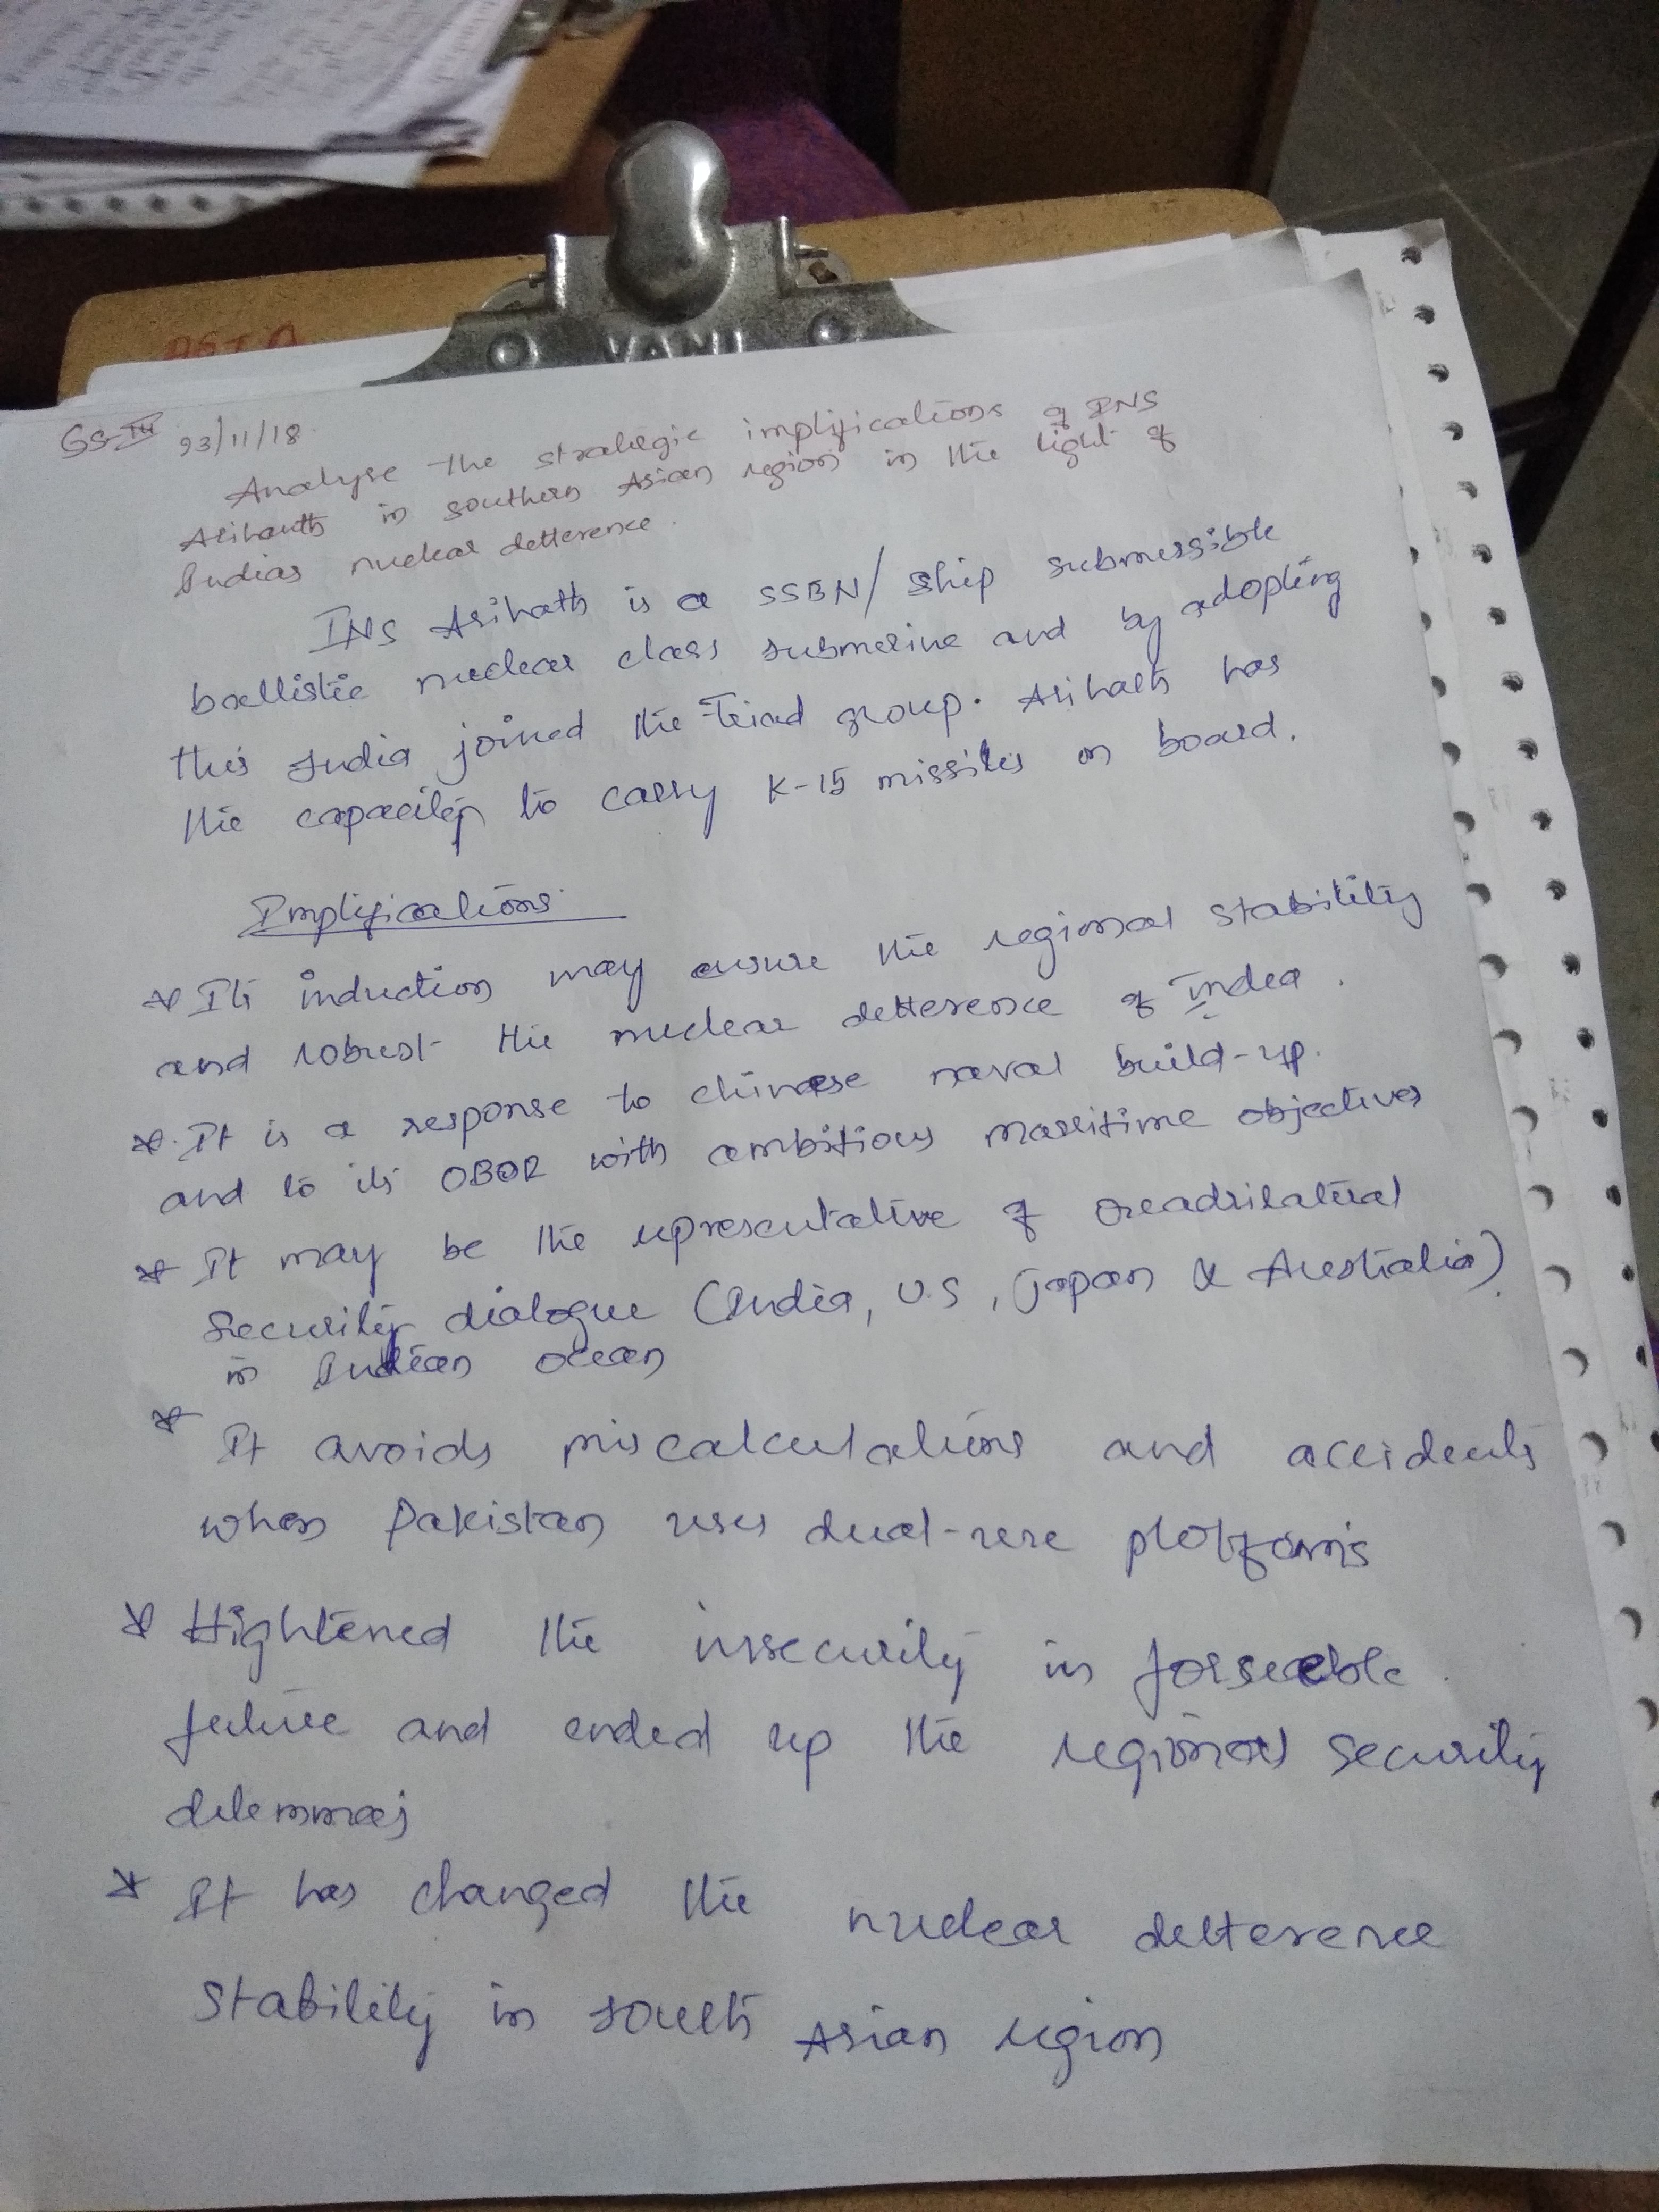 VANI
GS-III 23/11/18
Analyse the strategic implifications of INS
Arihanth in southern Asian region in the light of
Indias nuclear detterence.
INS Arihath is a SSBN/ Ship submerssible
ballistic nuclear class submarine and by adopting
this India joined the Triad group. Arihath has
the capacity to carry K-15 missiles on board.
Implifications
* Its induction may ensure the regional stability
and robust the nuclear detterence of India.
* It is a response to chinese naval build-up.
and to its OBOR with ambitious maritime objectives
* It may be the representative of Quadrilateral
Security dialogue (India, U.S, Japan & Australia)
in Indian ocean
* It avoids miscalculations and accidents
when Pakistan uses dual-use platforms
* Hightened the insecurity in forseeable
future and ended up the regional security
dilemmas
* It has changed the nuclear detterence
Stability in south Asian region